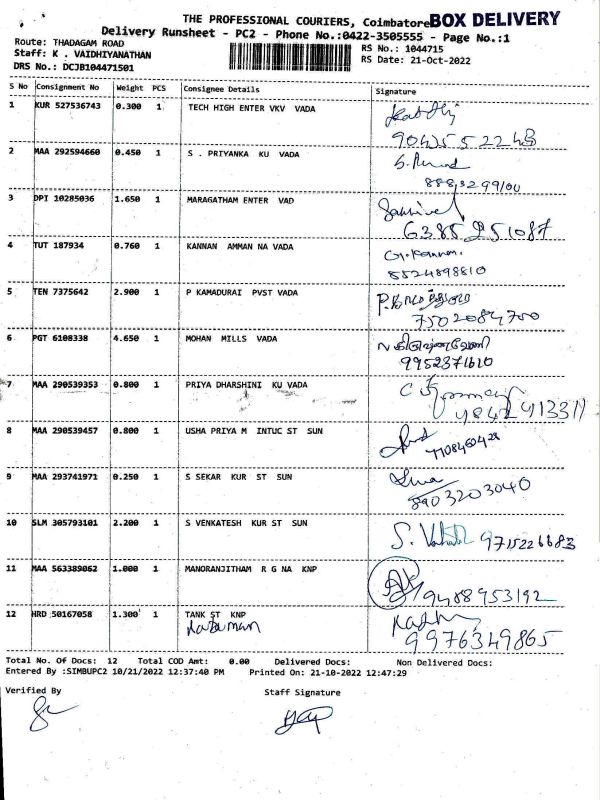 THE PROFESSIONAL COURIERS, Coimbatore BOX DELIVERY
Delivery Runsheet - PC2 - Phone No.:0422-3505555 - Page No.:1
Route: THADAGAM ROAD
RS No.: 1044715
Staff: K . VAIDHIYANATHAN
RS Date: 21-Oct-2022
DRS No.: DCJB104471501
S No Consignment No Weight PCS Consignee Details Signature
1 KUR 527536743 0.300 1 TECH HIGH ENTER VKV VADA
2 MAA 292594660 0.450 1 S . PRIYANKA KU VADA
3 DPI 10285036 1.650 1 MARAGATHAM ENTER VAD
6385251087
4 TUT 187934 0.760 1 KANNAN AMMAN NA VADA
8524898810
5 TEN 7375642 2.900 1 P KAMADURAI PVST VADA
7502084700
6 PGT 6108338 4.650 1 MOHAN MILLS VADA
9952371610
7 MAA 290539353 0.800 1 PRIYA DHARSHINI KU VADA
8 MAA 290539457 0.800 1 USHA PRIYA M INTUC ST SUN
9 MAA 293741971 0.250 1 S SEKAR KUR ST SUN
8903203040
10 SLM 305793101 2.200 1 S VENKATESH KUR ST SUN
9715226683
11 MAA 563389062 1.000 1 MANORANJITHAM R G NA KNP
9488953192
12 HRD 50167058 1.300 1 TANK ST KNP
9976349865
Total No. Of Docs: 12 Total COD Amt: 0.00 Delivered Docs: Non Delivered Docs:
Entered By :SIMBUPC2 10/21/2022 12:37:40 PM Printed On: 21-10-2022 12:47:29
Verified By Staff Signature